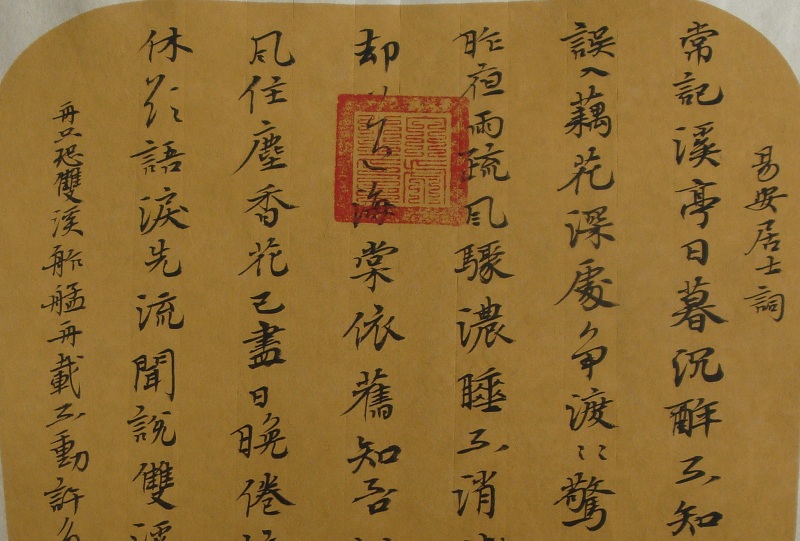 易安居士詞
常記溪亭日暮沉醉不知
誤入藕花深處爭渡〻驚
昨夜雨疏風驟濃睡不消
却道海棠依舊知否
風住塵香花已盡日晚倦
休欲語淚先流聞說雙溪
舟只恐雙溪舴艋舟載不動許多